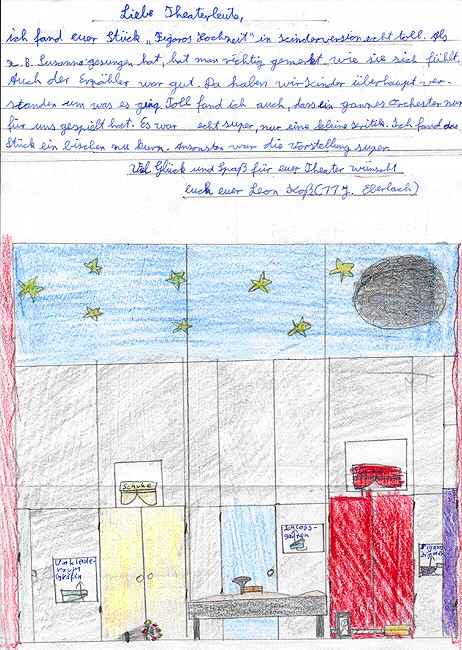 Liebe Theaterleute,
ich fand euer Stück „Figaros Hochzeit" in Kinderversion echt toll. Als
z. B. Susanna gesungen hat, hat man richtig gemerkt, wie sie sich fühlt.
Auch der Erzähler war gut. Da haben wir Kinder überhaupt ver-
standen um was es ging. Toll fand ich auch, dass ein ganzes Orchester nur
für uns gespielt hat. Es war echt super, nur eine kleine Kritik: Ich fand das
Stück ein bischen zu kurz. Ansonsten war die Vorstellung super.
Viel Glück und Spaß für euer Theater wünscht
euch euer Leon Koß (11 J. Eberbach)
Schuhe
Umkleide-
raum
Gräfin
Schloss-
garten
Figaros
Zimmer